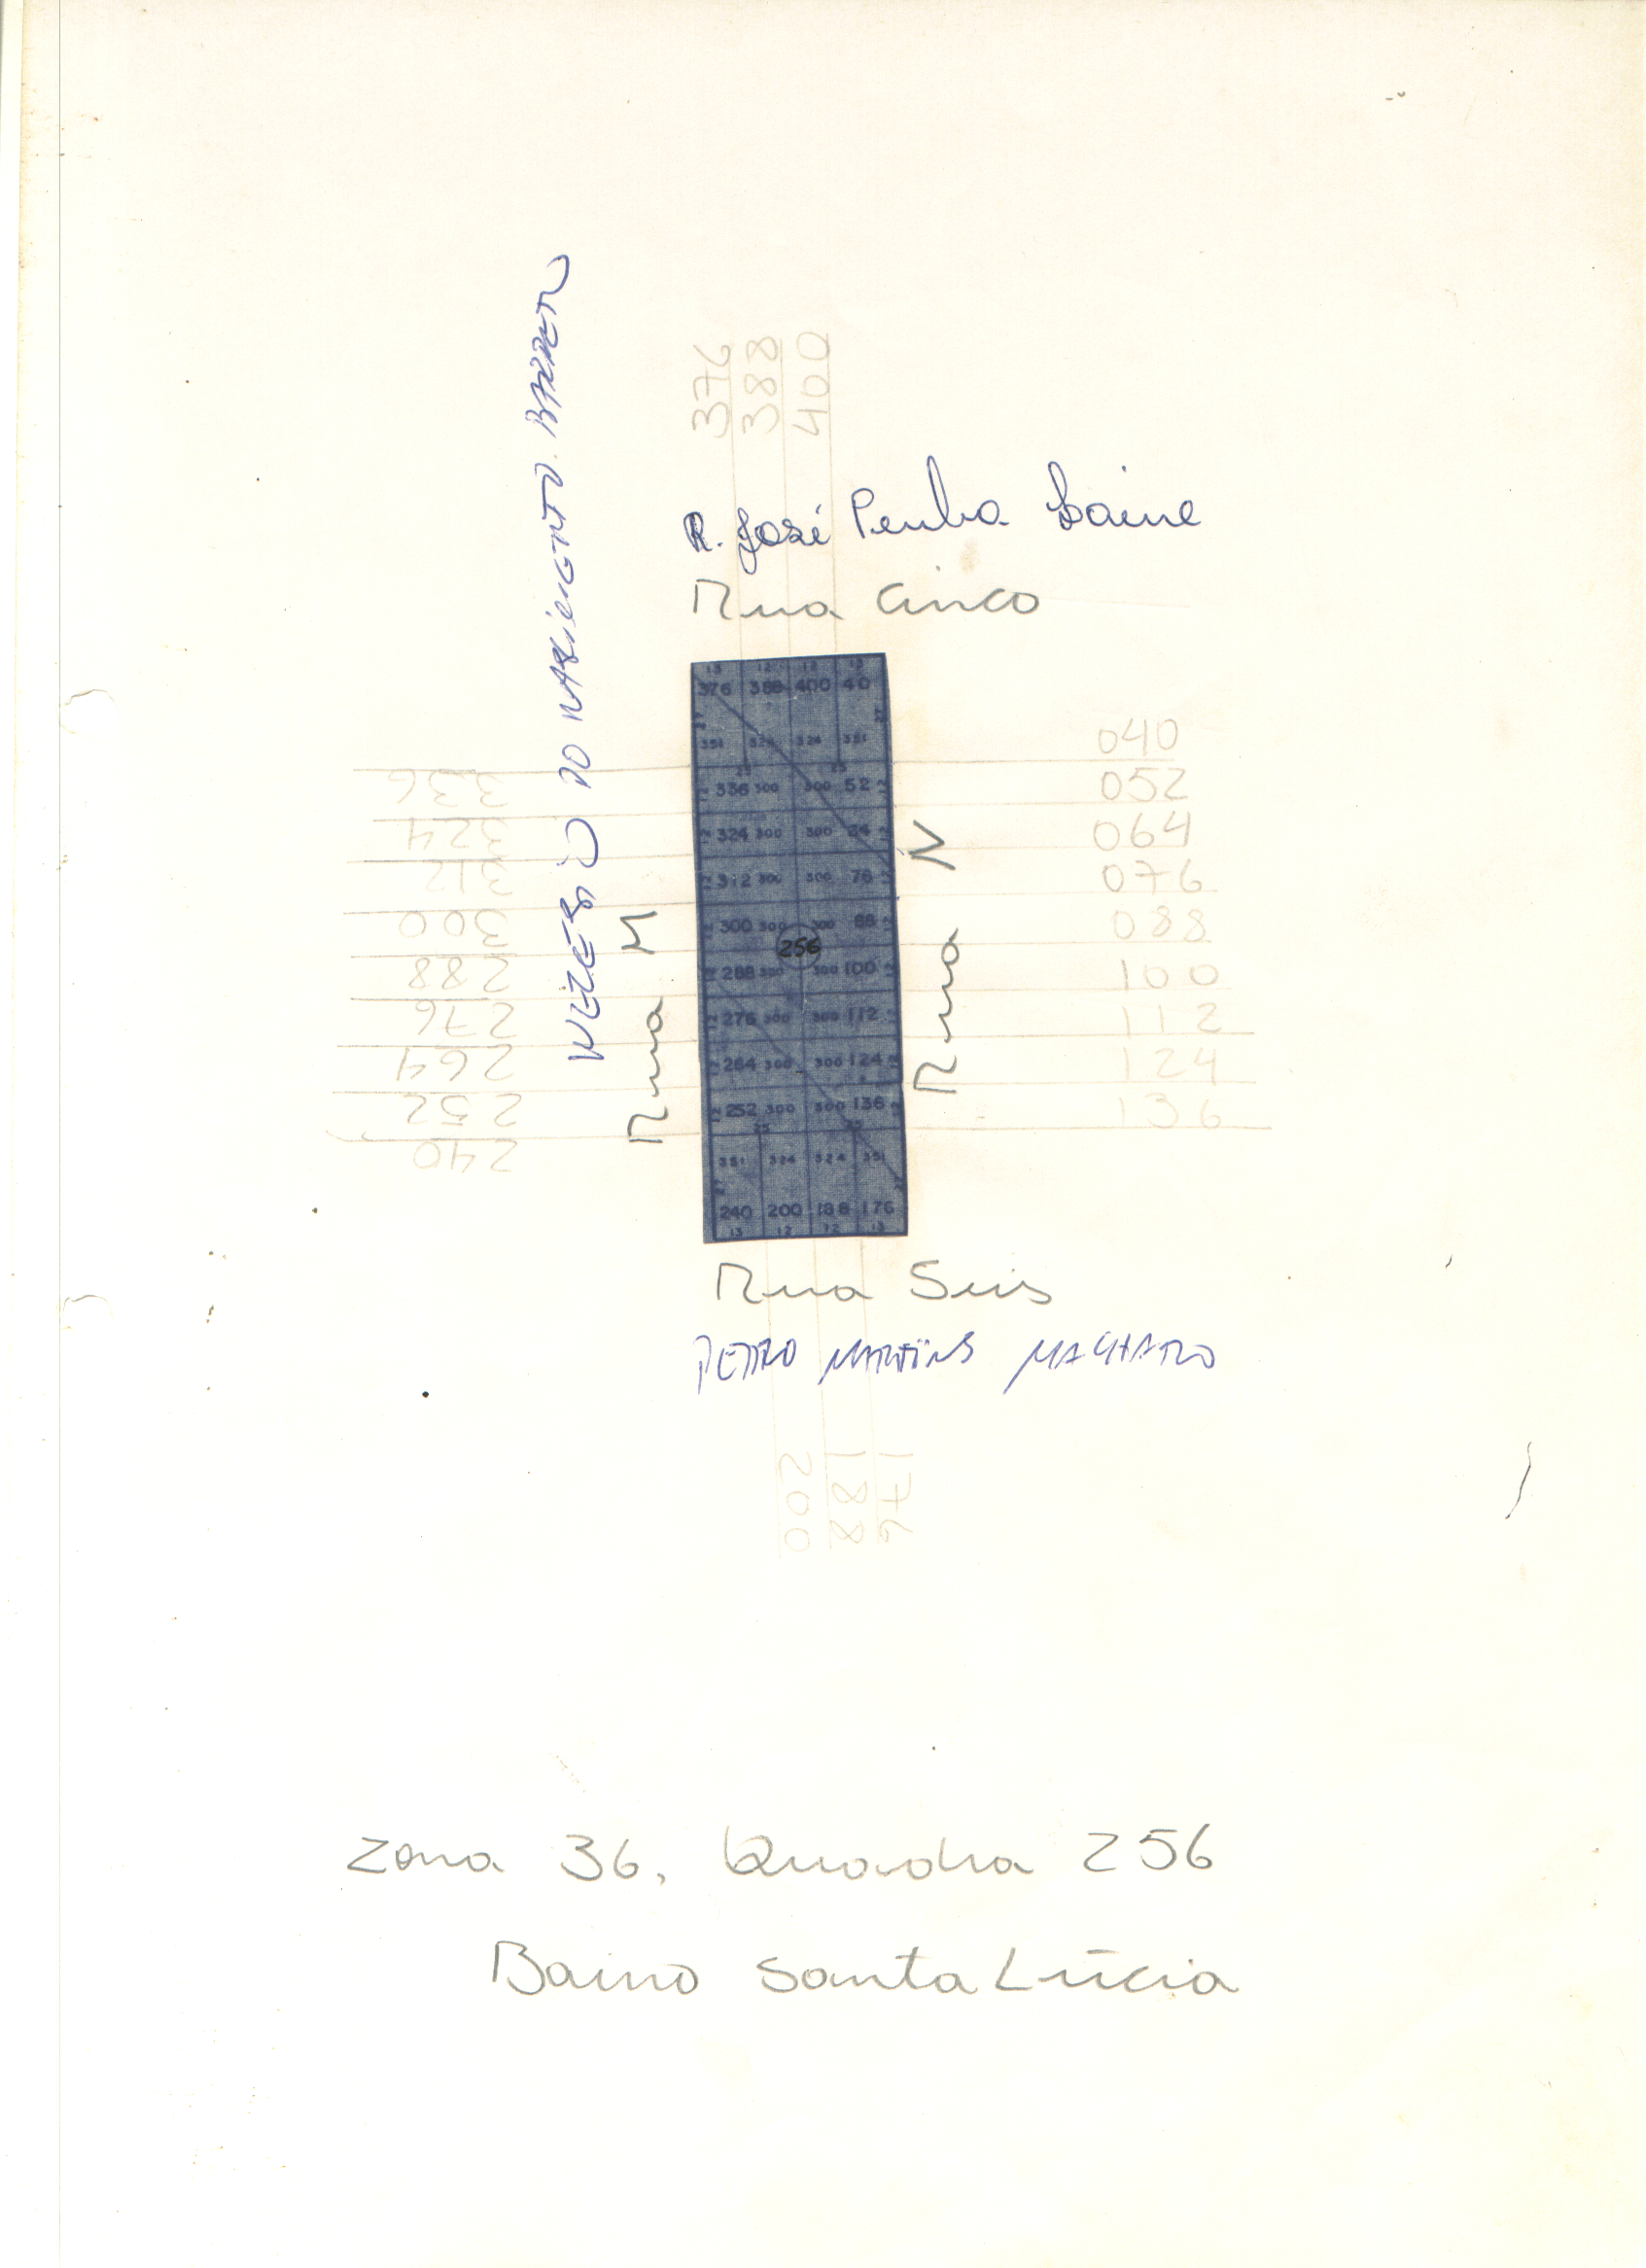 376
388
400
R. José Penha
Rua Cinco
13 12 12 13
376 388 400 40
27 27
351 324 324 351
25 25
12 336 300 300 52 12
12 324 300 300 64 12
12 312 300 300 76 12
12 300 300 300 88 12
256
12 288 300 300 100 12
12 276 300 300 112 12
12 264 300 300 124 12
12 252 300 300 136 12
25 25
351 324 324 351
27 27
240 200 188 176
13 12 12 13
336
324
312
300
288
276
264
252
240
DO NASCIMENTO
Rua M
Rua N
040
052
064
076
088
100
112
124
136
Rua Seis
PEDRO MARTINS MACHADO
200
188
176
Zona 36, Quadra 256
Bairro Santa Lúcia